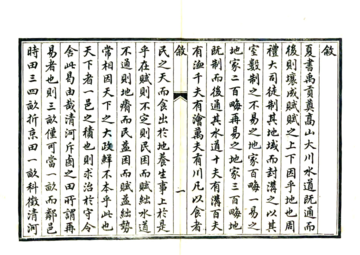 敘
夏書禹貢奠高山大川水道既通而
後則壤成賦賦之上下因乎地也周
禮大司徒制其地域而封溝之以其
室數制之不易之地家百畮一易之
地家二百畮再易之地家三百畮地
既制而後通其水道十夫有溝百夫
有洫千夫有澮萬夫有川凡以食者
敘
一
民之天而食出於地養生事上於是
乎在賦則不定則民困而賦絀水道
不通則地瘠而民益困而賦益絀勢
常相因天下之大政鮮不本乎此也
天下者一邑之積也則求治於守令
舍此曷由哉清河斥鹵之田所謂再
易者也則三畝僅可當一畝而鄰邑
時田三四畝折京田一畝科徵清河